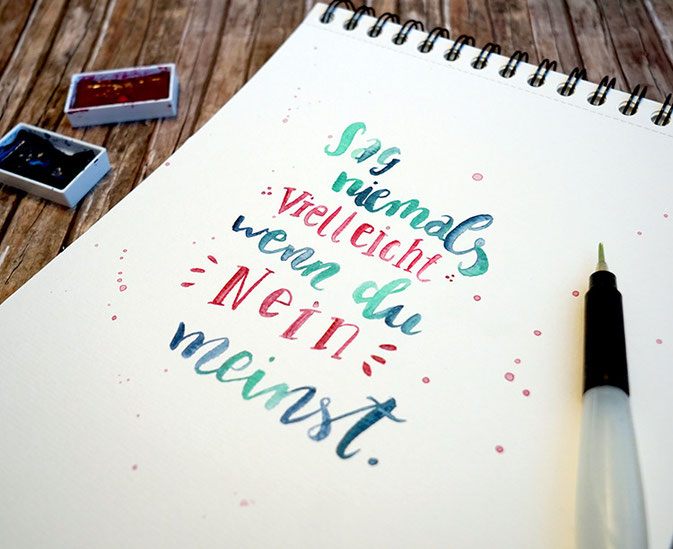 Sag
niemals
Vielleicht
wenn du
Nein
meinst.